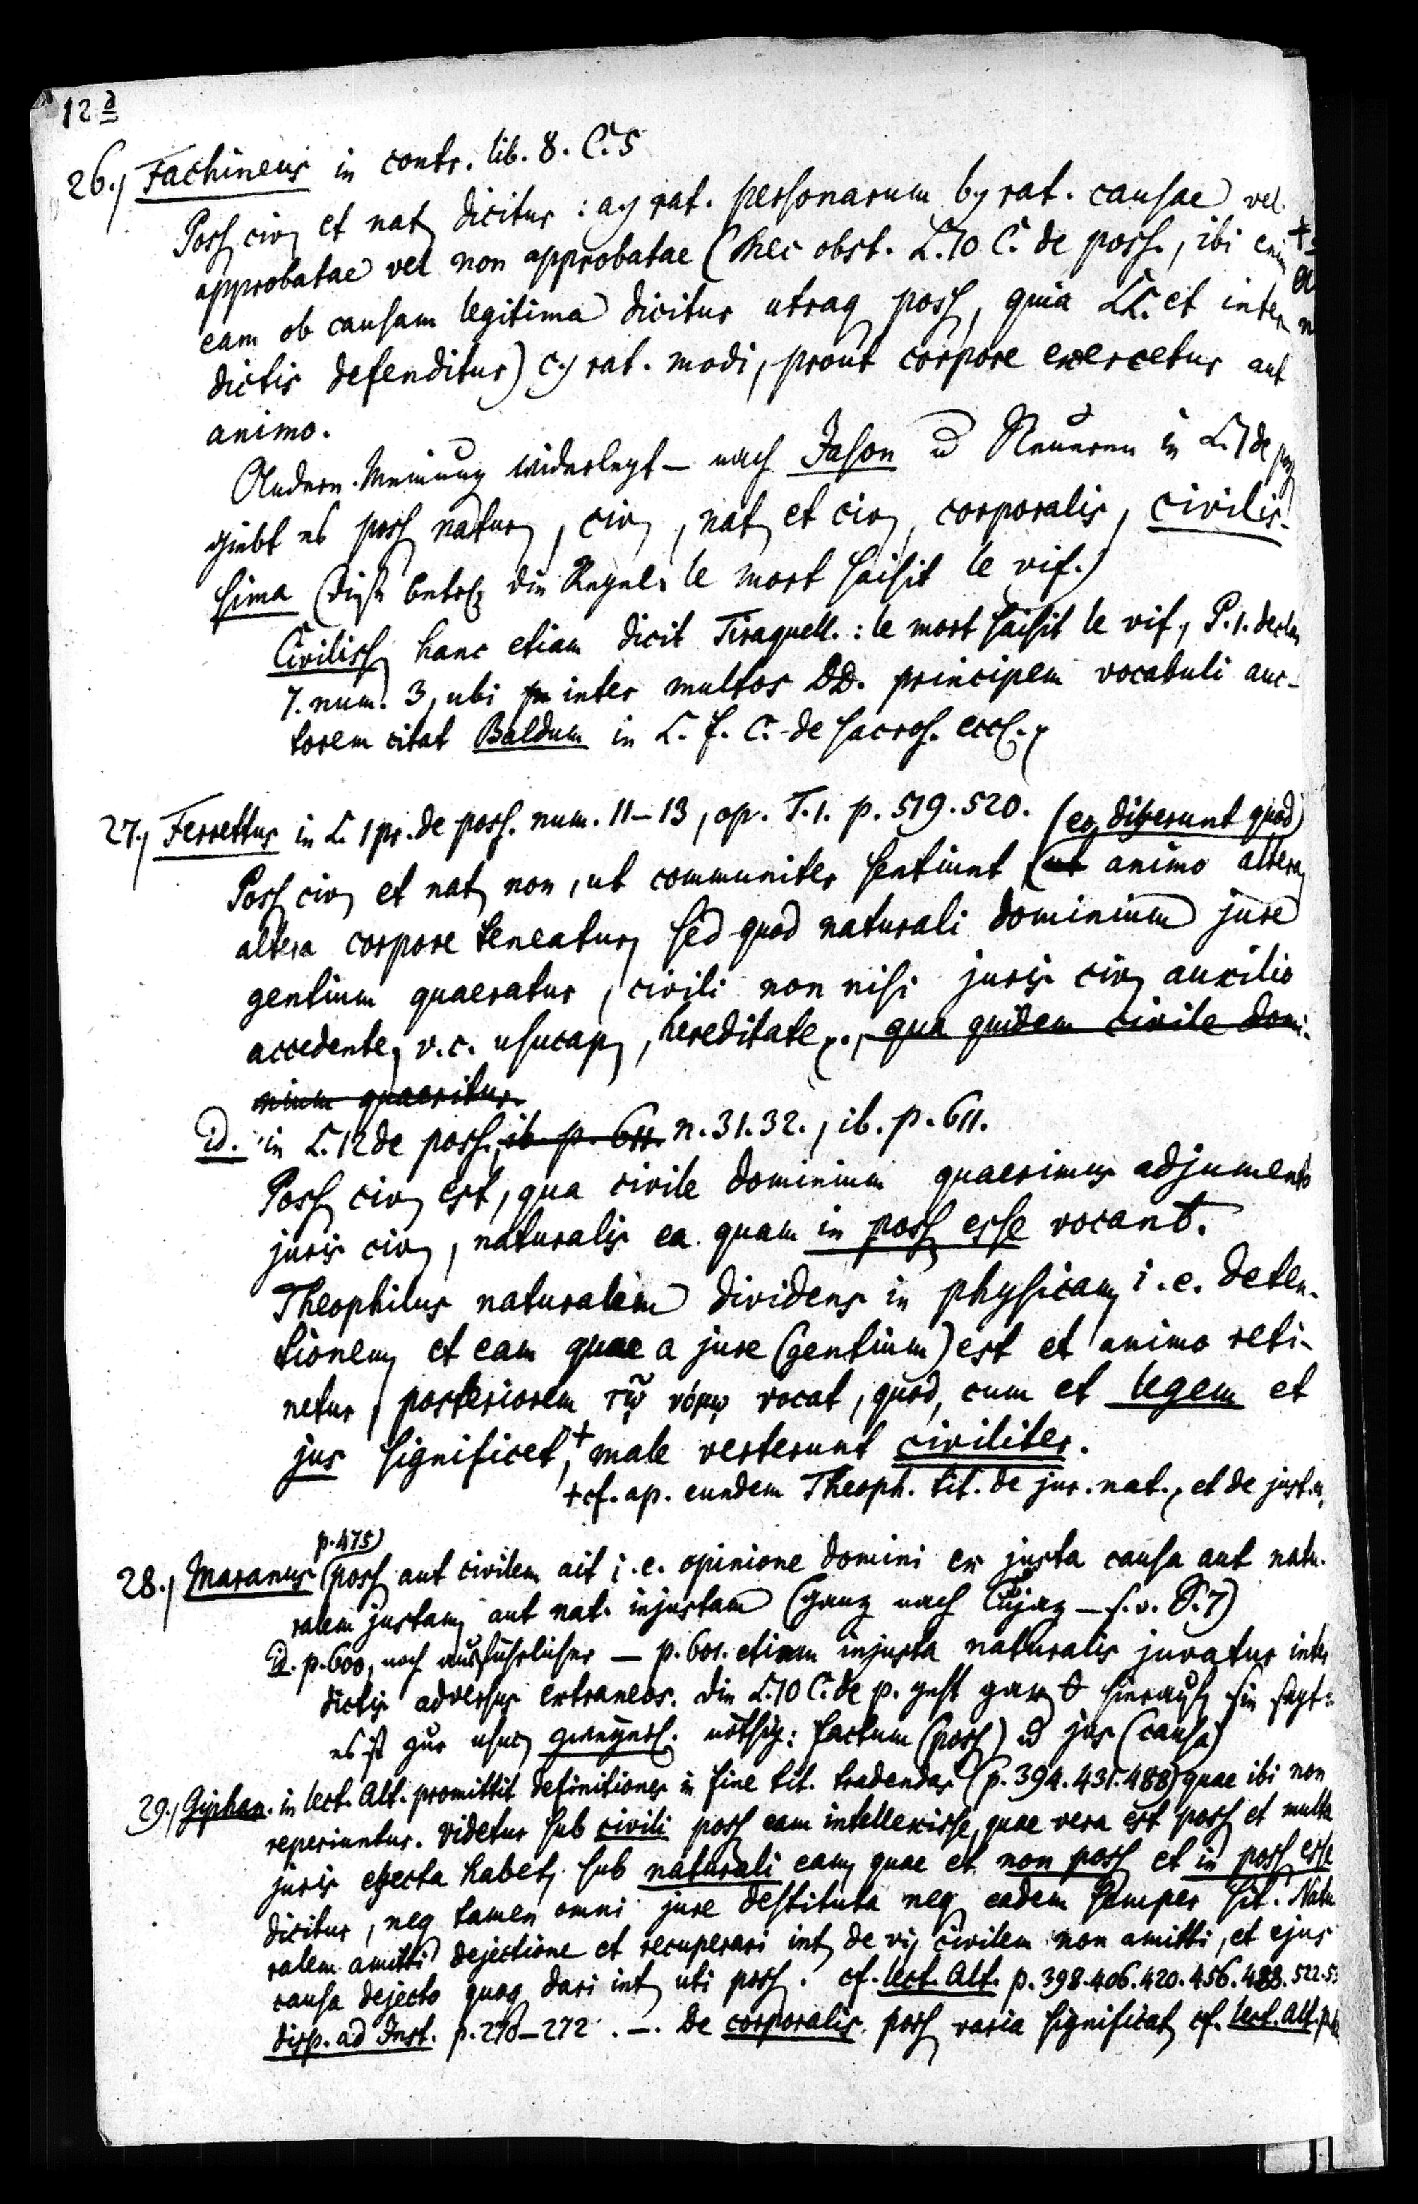 12 a
26.) Fachineus in contr. lib. 8. C. 5
Poss civ et nat dicitur : a.) rat. personarum b.) rat. causae vel
approbatae vel non approbatae (nec obst. L. 10 C. de poss., ibi enim
eam ob causam legitima dicitur utraq poss, quia LL. et inter
dictis defenditur) c.) rat. modi, prout corpore exercetur aut
animo.
Andern Meinung widerlegt — nach Jason u Neueren in L. 1 de
giebt es poss natur, civ, nat et civ, corporalis, civilis-
sima (diese die Regel: le mort saisit le vif.)
Civiliss hanc etiam dicit Tiraquell. : le mort saisit le vif, P. 1. declar
7. num. 3, ubi inter multos DD. principem vocabuli auc-
torem citat Baldum in L. f. C. de sacros. eccl.
27.) Ferrettus in L. 1 pr. de poss. num. 11–13, op. T. 1. p. 519. 520. (eo differunt quod)
Poss civ et nat non, ut communiter sentiunt (ut animo altera
altera corpore teneatur, sed quod naturali dominium jure
gentium quaeratur, civili non nisi juris civ auxilio
accedente, v. c. usucap, hereditate, qua quidem civile domi-
nium quaeritur.
id. in L. 12 de poss., ib. p. 611. n. 31. 32., ib. p. 611.
Poss civ est, qua civile dominium quaerimus adjumento
juris civ, naturalis ea quam in poss esse vocant.
Theophilus naturalem dividens in physicam i. e. deten-
tionem et eam quae a jure (gentium) est et animo reti-
netur, posteriorem τῷ νόμῳ vocat, quod, cum et legem et
jus significet, + male verterunt civiliter.
+ cf. ap. eundem Theoph. tit. de jur. nat., et de just.
p. 475)
28.) Maranus (poss aut civilem ait i. e. opinione domini ex justa causa aut natu-
ralem justam aut nat. injustam (ganz nach Cujaz — s. v. S. 7)
id. p. 600, noch ausführlicher — p. 601. etiam injusta naturalis juvatur inter
dictis adversus extraneos. Die L. 10 C. de p. geht gar hierauf sie sagt:
es ist zur usuc nöthig: factum (poss) u jus (causa)
29.) Giphan. in lect. Alt. promittit definitiones in fine tit. tradendas (p. 394. 431. 488) quae ibi non
reperiuntur. videtur sub civili poss eam intellexisse, quae vera est poss et multa
juris effecta habet, sub naturali eam, quae et non poss et in poss esse
dicitur, neq tamen omni jure destituta neq eadem semper sit. Natu
ralem amitti dejectione et recuperari int de vi, civilem non amitti, et ejus
causa dejecto quoq dari int uti poss. cf. lect. Alt. p. 398. 406. 420. 456. 488. 522.
disp. ad Inst. p. 270–272 . —. De corporalis poss varia significat cf. lect. Alt.